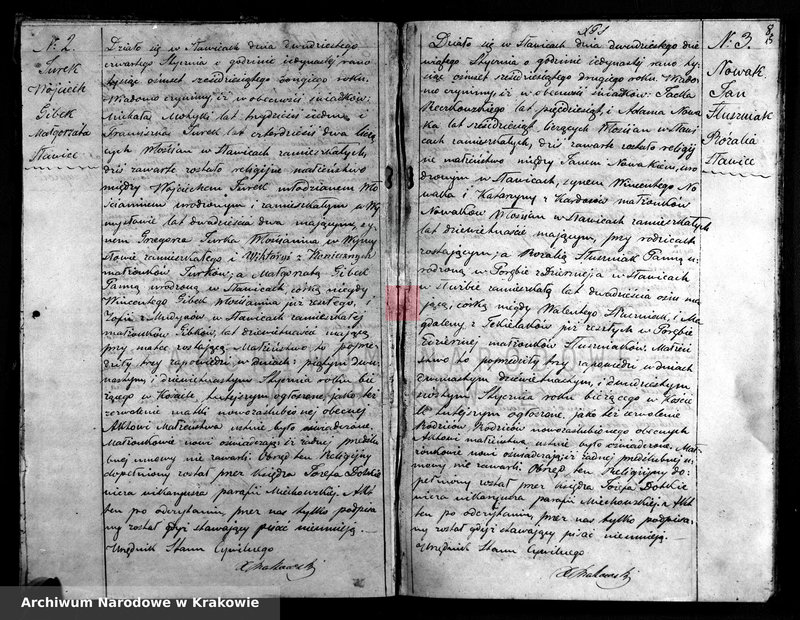 N: 2.
Turek
Wojciech
Gibek
Małgorzata
Sławice
Działo się w Sławicach dnia dwudziestego
czwartego Stycznia o godzinie iedynastej rano
tysiąc ośmset sześdziesiątego drugiego roku.
Wiadomo czynimy, iż w obecności świadków;
Michała lat trzydzieści siedm i
Franciszka Turek lat czterdzieści dwa liczą
cych Włościan w Sławicach zamieszkałych,
dziś zawarte zostało religijne małżeństwo
między Wojciechem Turek młodzianem Wło
ścianinem urodzonym i zamieszkałym w Wy
mysłowie lat dwadzieścia dwa mającym, sy
nem Grzegorza Turka Włościanina w Wymy
słowie zamieszkałego i Wiktoryi z
małżonków Turków; a Małgorzatą Gibek
Panną urodzoną w Sławicach, córką niegdy
Wincentego Gibek Włościanina już zmarłego, i
Zofii z w Sławicach zamieszkałej
małżonków Gibków, lat dziewietnaście mającą
przy matce zostającą. Małżeństwo to poprze
dziły trzy zapowiedzi w dniach: piątym dwu
nastym, i dziewietnastym Stycznia roku bie
żącego w Kościele tutejszym ogłoszone, jako też
zezwolenie matki nowozaślubionej obecnej
Aktowi Małżeństwa ustnie było oświadczone.
Małżonkowie nowi oświadczają iż żadnej przedślu
bnej umowy nie zawarli. Obrzęd ten Religijny
dopełniony został przez księdza Józefa
wikaryusza parafii Miechowskiej. Akt
ten po odczytaniu, przez nas tylko podpisa
ny został gdyż stawający pisać nieumieją.
Urzędnik Stanu Cywilnego
N: 3.
Nowak
Jan
Słuszniak
Rózalia
Sławice
Działo się w Sławicach dnia dwudziestego dzie
wiątego Stycznia o godzinie iedynastej rano ty
siąc ośmset sześdziesiątego drugiego roku. Wiado
mo czynimy, iż w obecności świadków: Jacka
lat pięćdziesiąt, i Adama Nowa
ka lat sześdziesiąt liczących Włościan w Sławi
cach zamieszkałych, dziś zawarte zostało religij
ne małżeństwo między Janem Nowakiem, uro
dzonym w Sławicach, synem Wincentego No
waka i Katarzyny z małżonków
Nowaków Włościan w Sławicach zamieszkałych
lat dziewietnaście mającym, przy rodzicach
zostającym; a Rozalią Słuszniak Panną u
rodzoną w Porębie Dzierżnej, a w Sławicach
w służbie zamieszkałą lat dwadzieścia ośm ma
jącą; córką niegdy Walentego Słuszniak, i Ma
gdaleny z już zmarłych w Porębie
Dzierżnej małżonków Słuszniaków. Małżeń
stwo to poprzedziły trzy zapowiedzi w dniach
dwunastym dziewietnastym, i dwudziestym
szóstym Stycznia roku bieżącego w Kościele
tutejszym ogłoszone, jako też zezwolenie
Rodziców nowozaślubionego obecnych
Aktowi małżeństwa, ustnie było oświadczone. Mał
żonkowie nowi oświadczają iż żadnej przedślubnej u
mowy nie zawarli. Obrzęd ten Religijny do
pełniony został przez księdza Józefa
wikaryusza parafii Miechowskiej. Akt
ten po odczytaniu, przez nas tylko podpisa
ny został gdyż stawający pisać nieumieją.
Urzędnik Stanu Cywilnego
Archiwum Narodowe w Krakowie